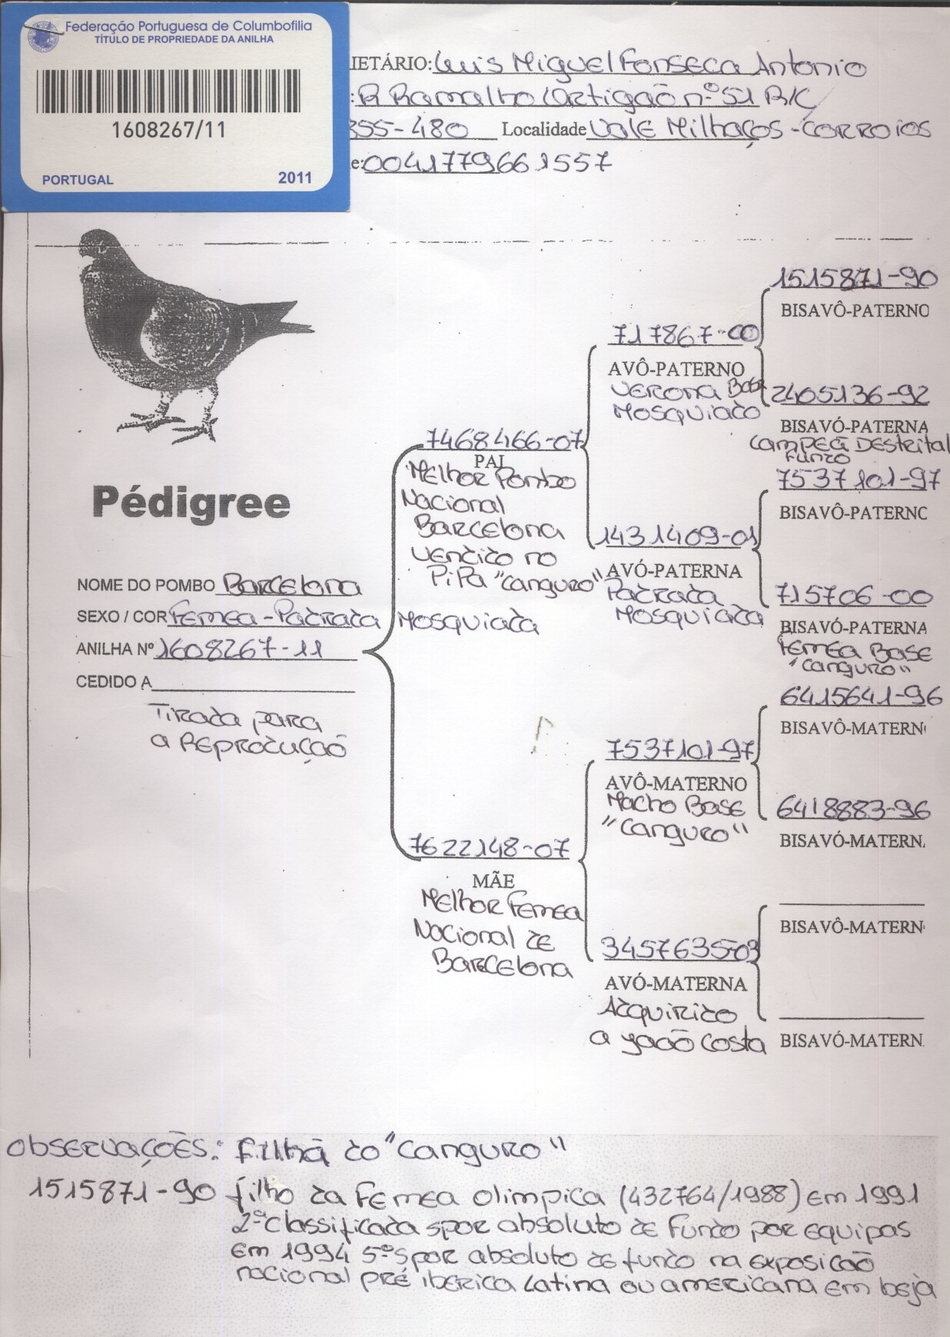 Federação Portuguesa de Columbofilia
TÍTULO DE PROPRIEDADE DA ANILHA
1608267/11
PORTUGAL 2011
IETÁRIO: Luis Miguel Fonseca Antonio
: R Ramalho Ortigão nº 51 R/C
855-480 Localidade Vale Milhaços - CORROIOS
e: 0041779661557
1515871-90
BISAVÔ-PATERNO
717867-00
AVÔ-PATERNO
VERONA BASE
MOSQUIADO
2405136-92
BISAVÓ-PATERNA
CAMPEÃ DESTRITAL
FUNDO
7468466-07
PAI
Melhor Pombo
Nacional
Barcelona
Vendido no
PiPa "canguro"
7537101-97
BISAVÔ-PATERNO
1431409-01
AVÓ-PATERNA
Padrada
MOSQUIADA
715706-00
BISAVÓ-PATERNA
Femea BASE
"canguro"
Pédigree
NOME DO POMBO Barcelona
SEXO / COR Femea - Padrada Mosquiada
ANILHA Nº 1608267-11
CEDIDO A
Tirada para
a Reprodução
6415641-96
BISAVÔ-MATERN
7537101-97
AVÔ-MATERNO
Macho Base
"Canguro"
6418883-96
BISAVÓ-MATERN
7622148-07
MÃE
Melhor Femea
Nacional de
Barcelona
BISAVÔ-MATERN
3457635-03
AVÓ-MATERNA
Adquirido
a João Costa
BISAVÓ-MATERN
Observações: filhã do "Canguro"
1515871-90 filho da Femea Olimpica (432764/1988) Em 1991
2ª classificada spor absoluto de Fundo por equipas
Em 1994 5º spor absoluto de fundo na exposicão
nacional pré iberica Latina ou americana em beja